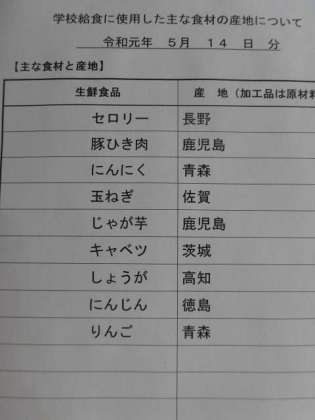 学校給食に使用した主な食材の産地について
令和元年 5月 14 日 分
【主な食材と産地】
生鮮食品 産 地（加工品は原材料
セロリー 長野
豚ひき肉 鹿児島
にんにく 青森
玉ねぎ 佐賀
じゃが芋 鹿児島
キャベツ 茨城
しょうが 高知
にんじん 徳島
りんご 青森